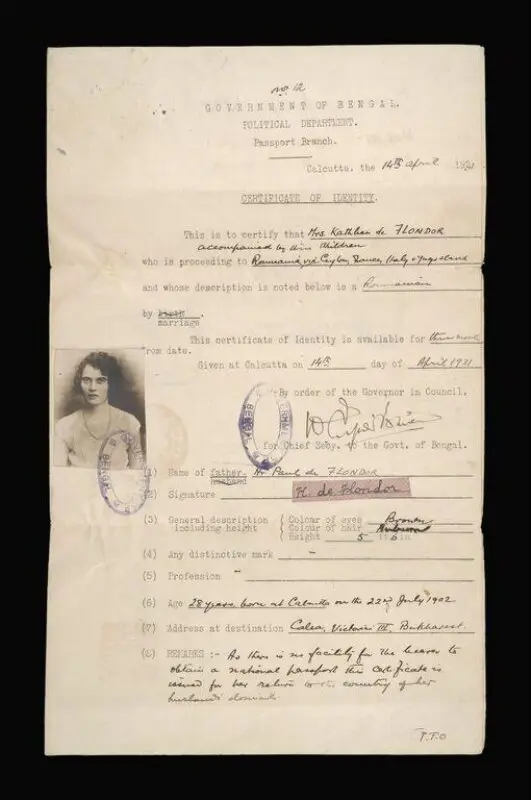 No 12
GOVERNMENT OF BENGAL.
POLITICAL DEPARTMENT.
Passport Branch.
Calcutta, the 14th April 1931
CERTIFICATE OF IDENTITY.
This is to certify that Mrs Kathleen de FLONDOR
accompanied by children
who is proceeding to Roumania, via Ceylon, France, Italy & Yugoslavia
and whose description is noted below is a Roumanian
by birth.
marriage
This certificate of Identity is available for three
rom date.
Given at Calcutta on 14th day of April 1931
By order of the Governor in Council.
for Chief Secy. to the Govt. of Bengal.
BENGAL
BENGAL
(1) Name of father. Mr Paul de FLONDOR
husband
(2) Signature K. de Flondor
(3) General description { Colour of eyes Brown
including height { Colour of hair Auburn
{ Height 5 ft 6 in
(4) Any distinctive mark -
(5) Profession -
(6) Age 28 years born at Calcutta on the 22nd July 1902
(7) Address at destination Calea, Victorie III, Bukharest.
(8) REMARKS :- As there is no facility for the bearer to
obtain a national passport this certificate is
issued for her return to the country of her
husband's domicile
P.T.O